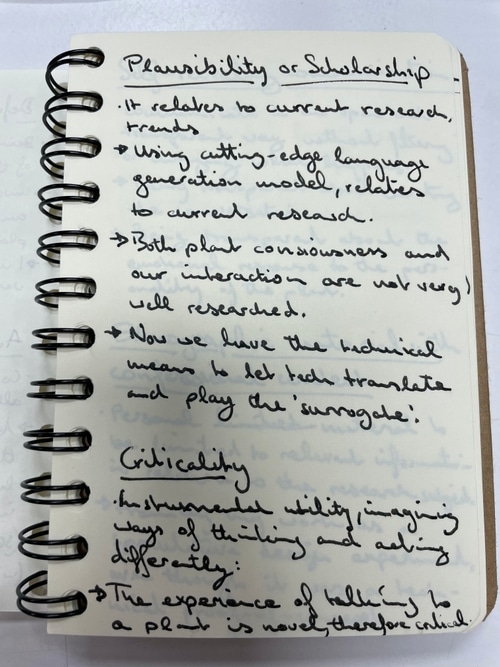 Plausibility or Scholarship
· It relates to current research,
trends
→ Using cutting-edge language
generation model, relates
to current research.
→ Both plant consiousness and
our interaction are not very)
well researched.
→ Now we have the technical
means to let tech translate
and play the 'surrogate'.
Criticality
· Instrumental utility, imagining
ways of thinking and acting
differently:
→ The experience of talking to
a plant is novel, therefore critical.